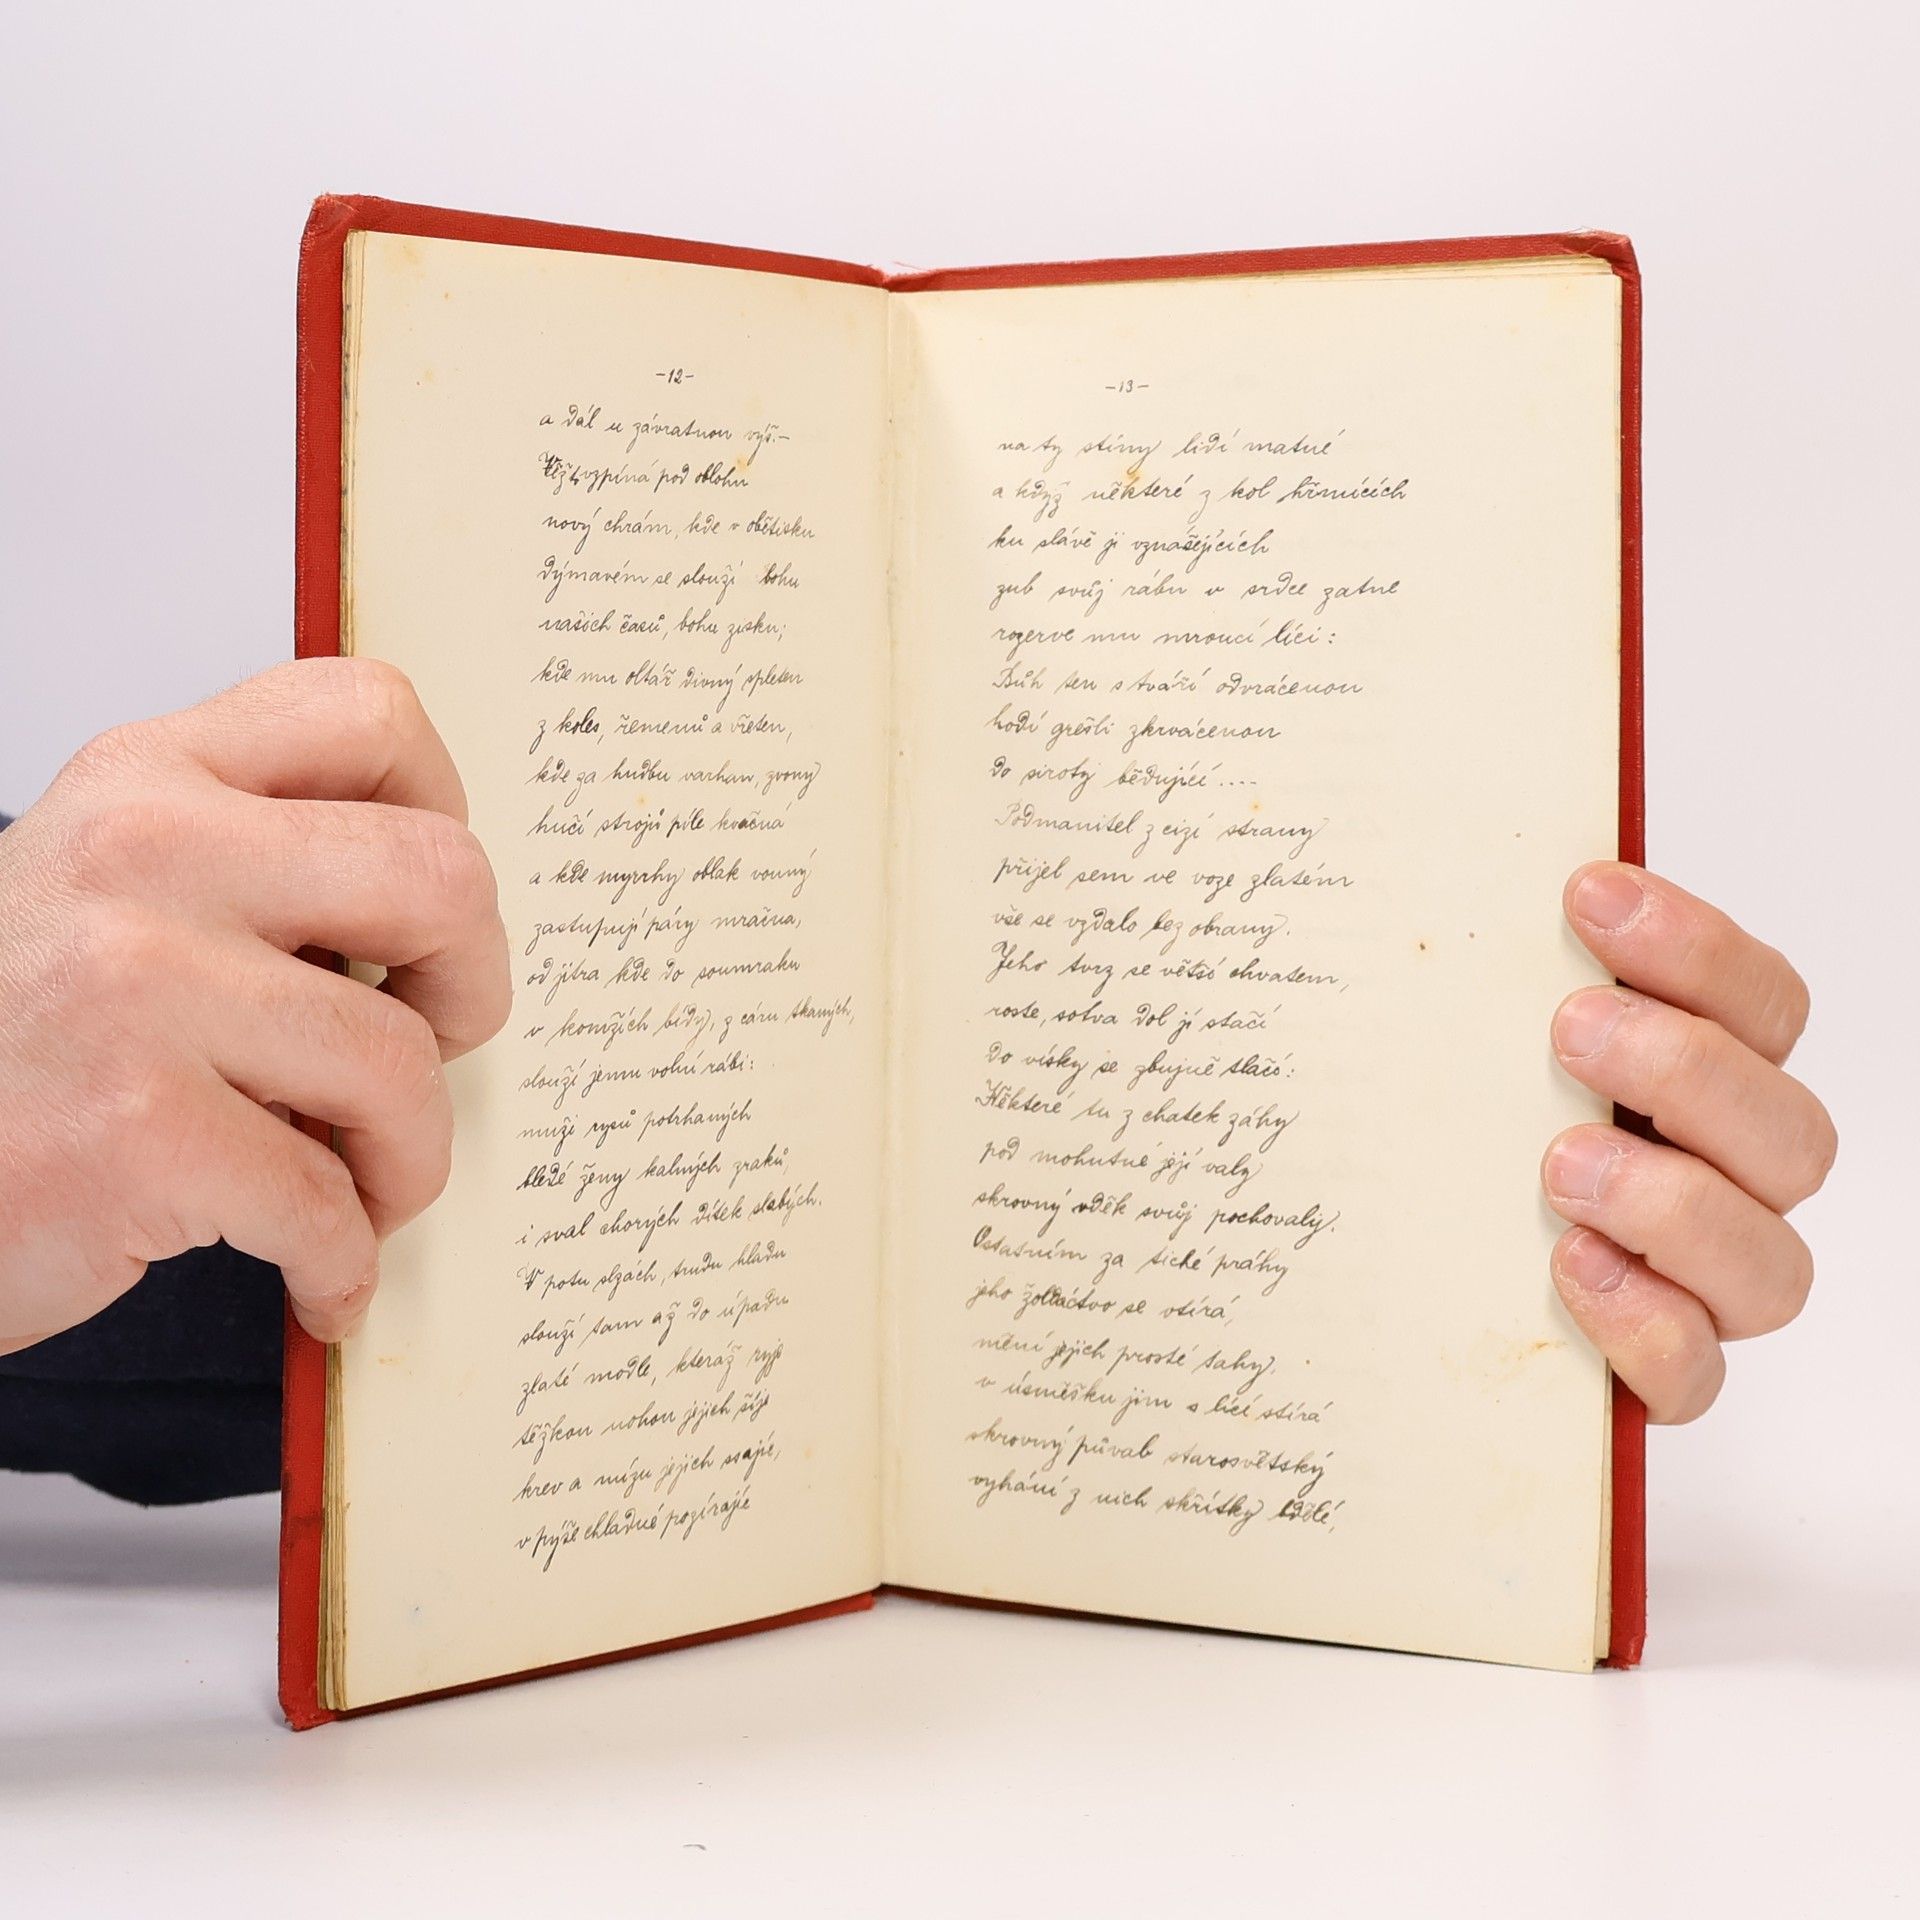 -12-
a dál u závratnou výš.-
Věž vzpíná pod oblohu
nový chrám, kde v obětisku
dýmavém se slouží bohu
našich časů, bohu zisku;
kde mu oltář divný spleten
z koles, řemenů a vřeten,
kde za hudbu varhan, zvony
hučí strojů píle kvačná
a kde myrrhy oblak vonný
zastupují páry mračna,
od jitra kde do soumraku
v komžích bídy, z cáru tkaných,
slouží jemu volní rábi:
muži rysů potrhaných
bledé ženy kalných zraků,
i sval chorých dítek slabých.
V potu slzách, trudu hladu
slouží tam až do úpadu
zlaté modle, kteráž ryje
těžkou nohou jejich šíje
krev a mízu jejich ssajíc,
v pýše chladné pozírajíc
-13-
na ty stíny lidí matné
a když některé z kol hřmících
ku slávě jí vznášejících
zub svůj rábu v srdce zatne
rozerve mu mroucí líci:
Bůh ten s tváří odvrácenou
hodí grešli zkrvácenou
do siroty bědující....
Podmanitel z cizí strany
přijel sem ve voze zlatém
vše se vzdalo bez obrany.
Jeho tvrz se větší chvatem,
roste, sotva dol jí stačí
do vísky se zbujně tlačí:
Některé tu z chatek záhy
pod mohutné její valy
skrovný vděk svůj pochovaly.
Ostatním za tiché práhy
jeho žoldáctvo se vtírá,
mění jejich prosté tahy,
v úsměšku jim s lící stírá
skrovný půvab starosvětský
vyhání z nich skřítky